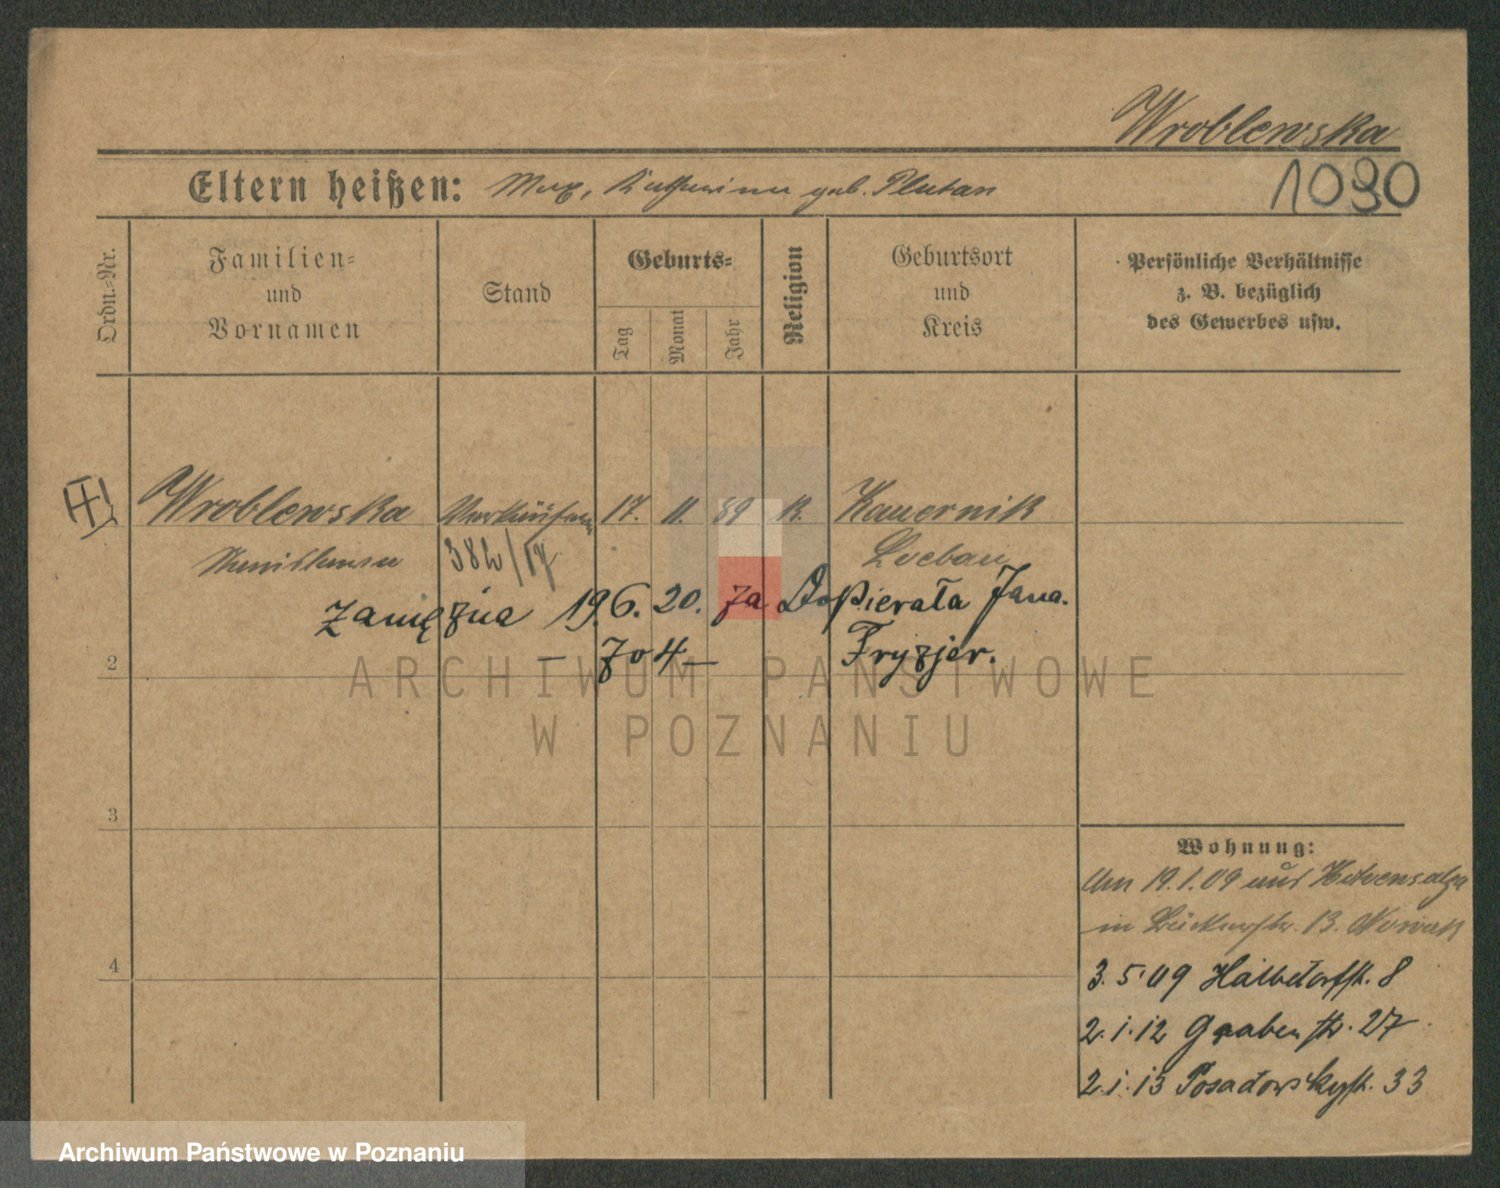 Wroblewska
1090
Eltern heißen: Max, Katharina geb. Plutan
Ordn.=Nr.
Familien=
und
Vornamen
Stand
Geburts=
Tag
Monat
Jahr
Religion
Geburtsort
und
Kreis
Persönliche Verhältnisse
z. B. bezüglich
des Gewerbes usw.
Wroblewska Verkäuferin 17. 11. 89 K. Kauernik
382/17 Loebau
Zamężna 19.6.20. za Dopierała Jana.
2
— 704 — Fryzjer.
3
Wohnung:
Am 19.1.09 aus
in 13. Nowak
4
3.5.09 Halbdorfstr. 8
2.1.12 Grabenstr. 27
2.1.13 Posadowskystr. 33
ARCHIWUM PAŃSTWOWE
W POZNANIU
Archiwum Państwowe w Poznaniu